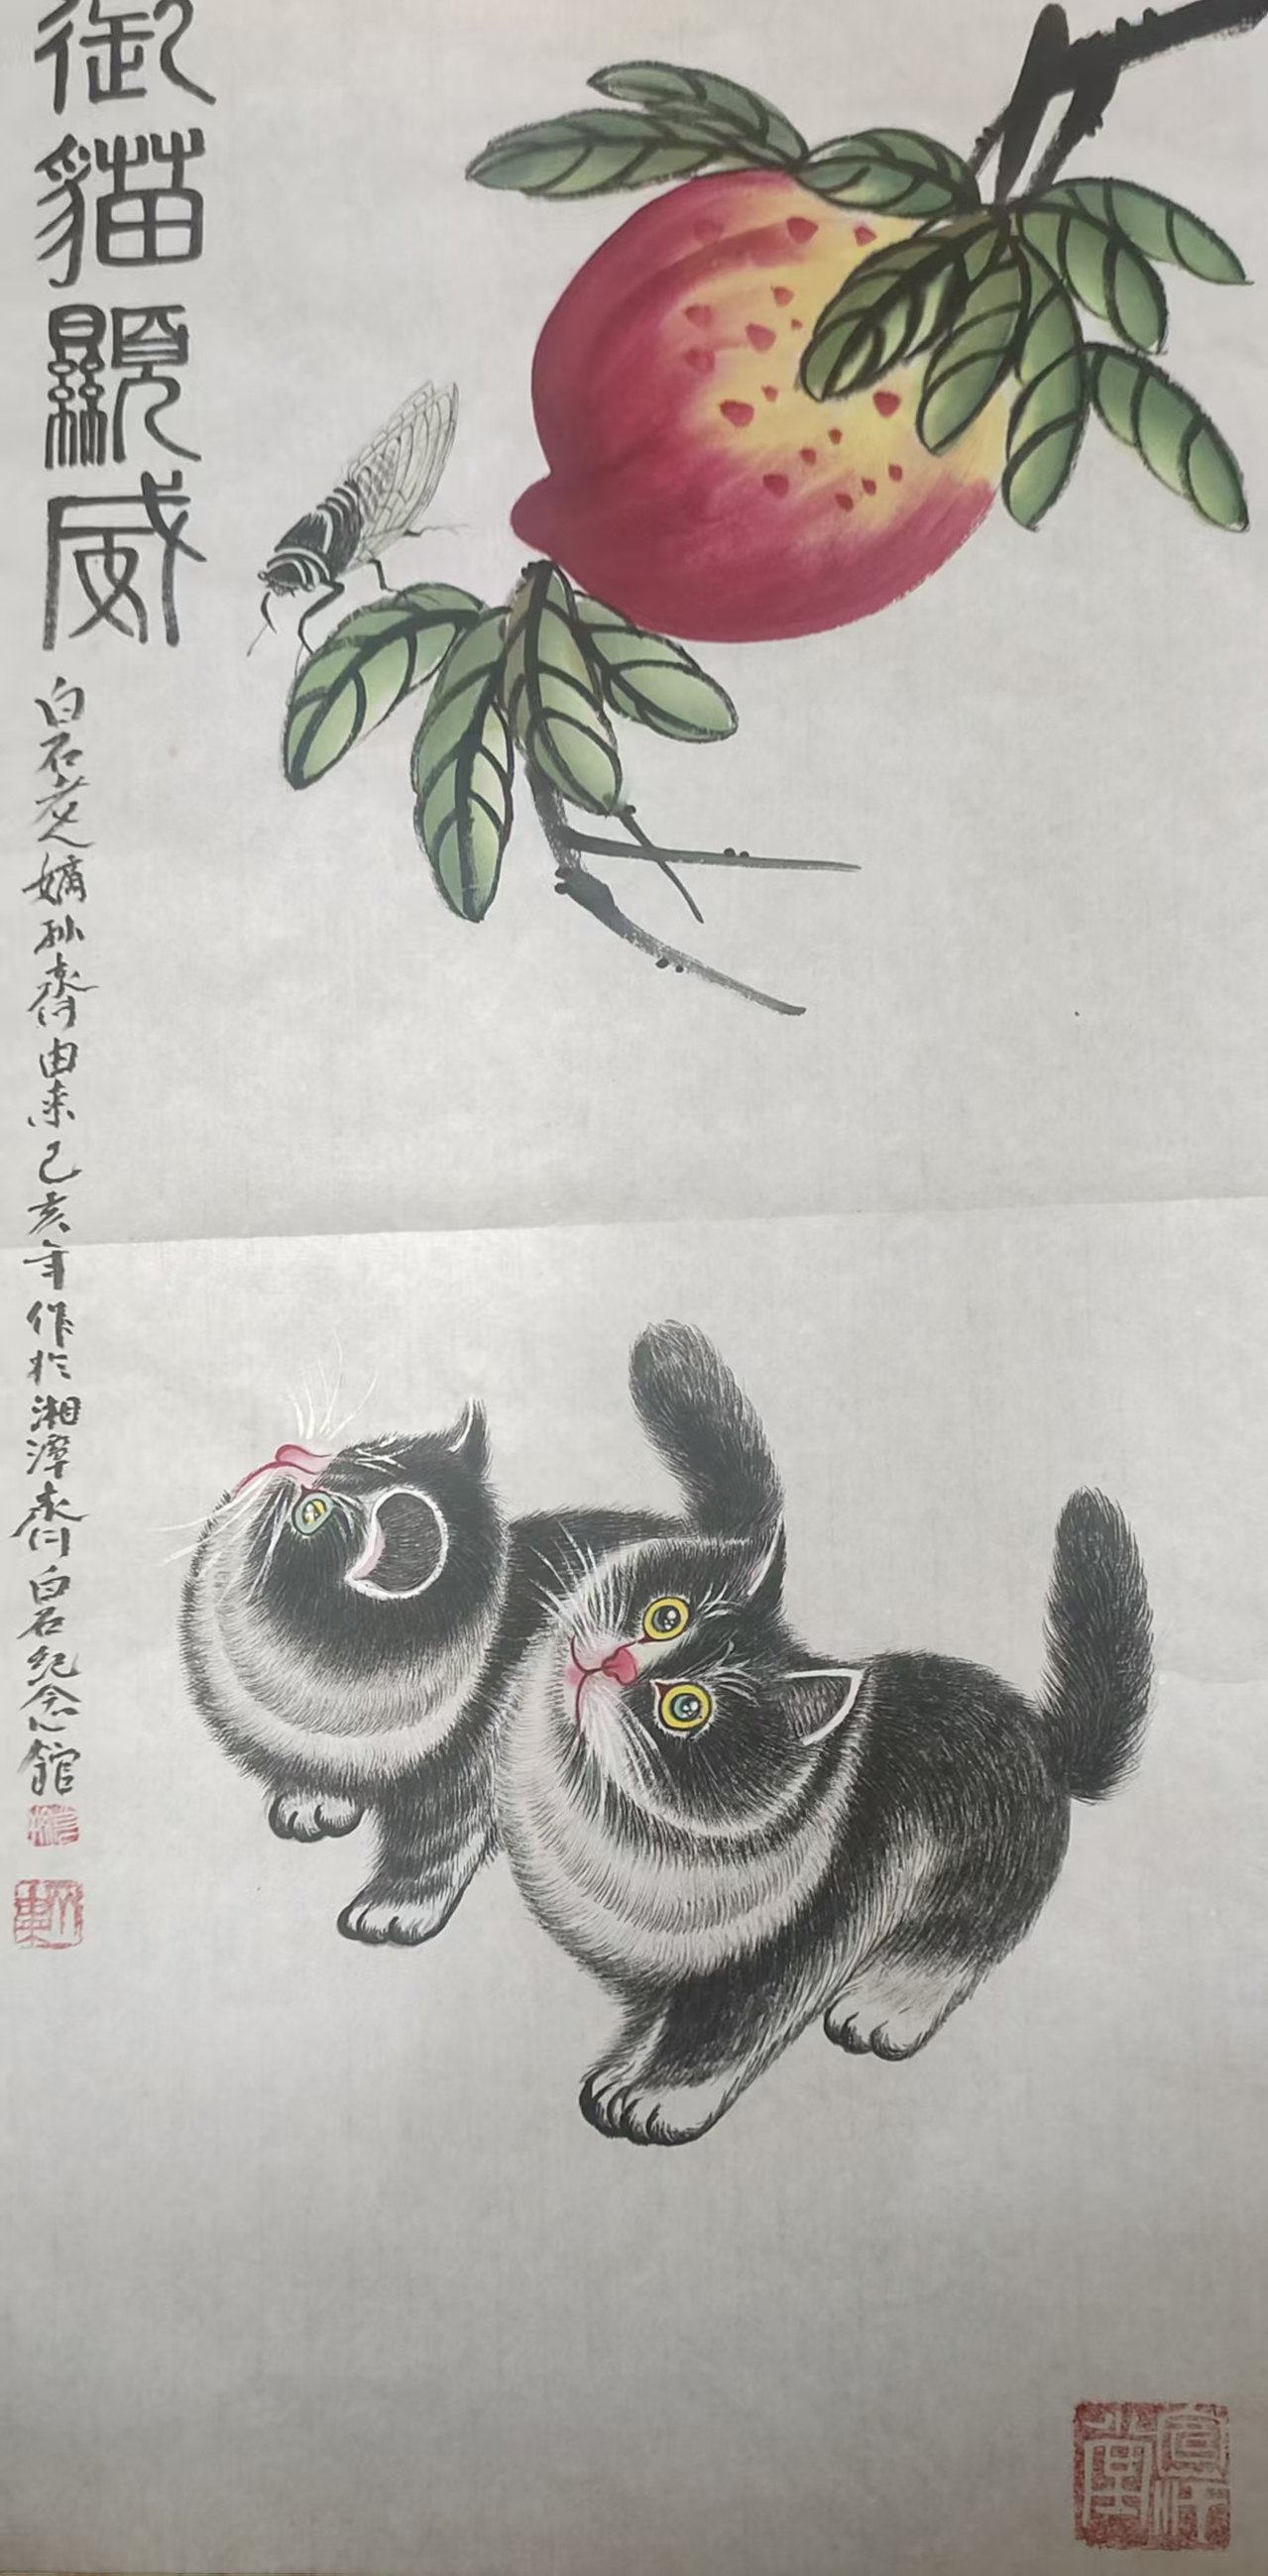 御貓顯威
白石老人嫡孙齊由来己亥年作於湘潭齊白石纪念館